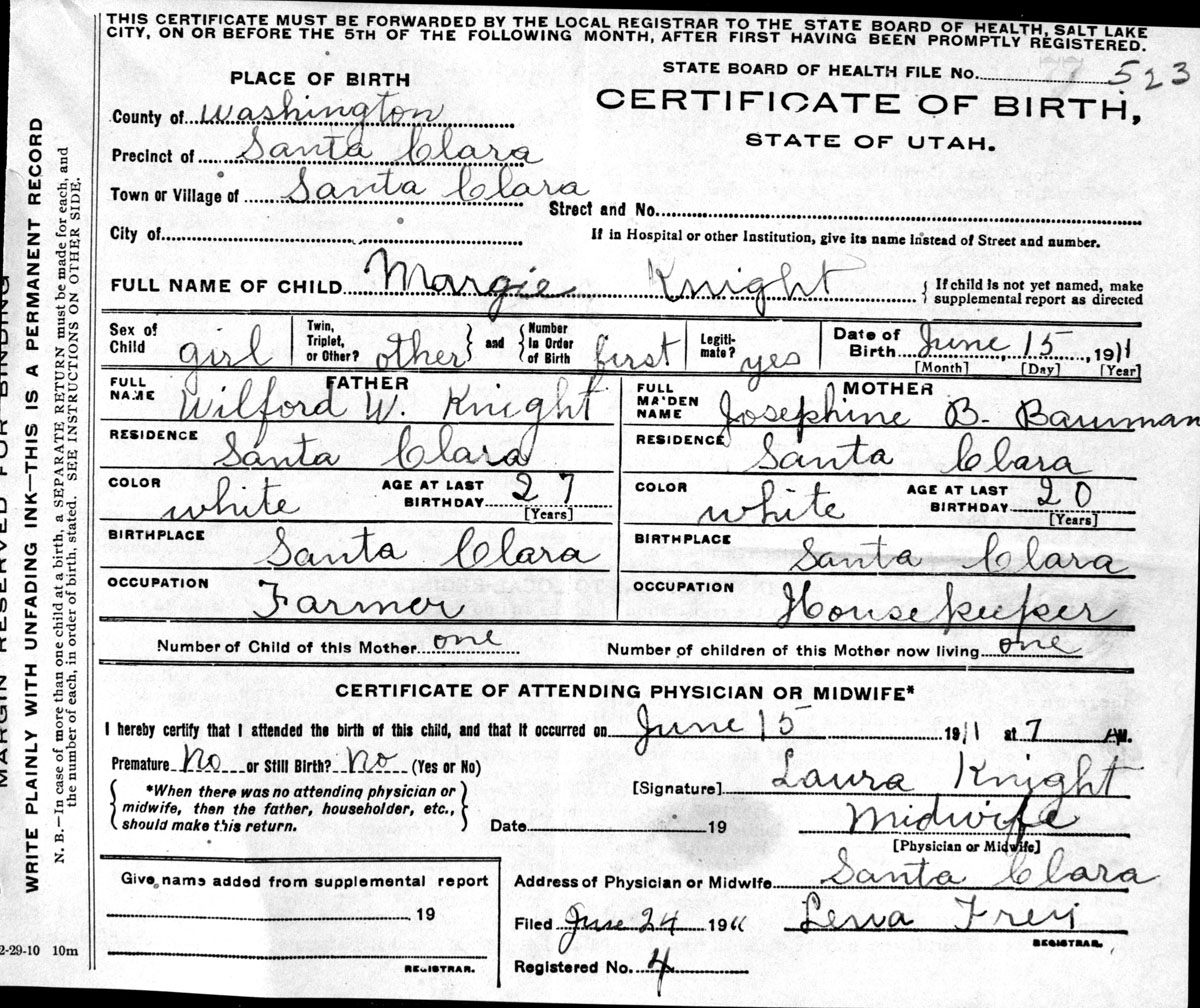 THIS CERTIFICATE MUST BE FORWARDED BY THE LOCAL REGISTRAR TO THE STATE BOARD OF HEALTH, SALT LAKE
CITY, ON OR BEFORE THE 5TH OF THE FOLLOWING MONTH, AFTER FIRST HAVING BEEN PROMPTLY REGISTERED.
STATE BOARD OF HEALTH FILE No. 523
CERTIFICATE OF BIRTH,
STATE OF UTAH.
PLACE OF BIRTH
County of Washington
Precinct of Santa Clara
Town or Village of Santa Clara
Street and No.
City of
If in Hospital or other Institution, give its name instead of Street and number.
FULL NAME OF CHILD Margie Knight
If child is not yet named, make
supplemental report as directed
Sex of
Child girl
Twin,
Triplet,
or Other? other
and
Number
in Order
of Birth first
Legiti-
mate? yes
Date of
Birth June, 15, 1911
[Month] [Day] [Year]
FATHER
FULL
NAME Wilford W. Knight
RESIDENCE Santa Clara
COLOR white AGE AT LAST
BIRTHDAY 27
[Years]
BIRTHPLACE Santa Clara
OCCUPATION Farmer
MOTHER
FULL
MAIDEN
NAME Josephine B. Bauman
RESIDENCE Santa Clara
COLOR white AGE AT LAST
BIRTHDAY 20
[Years]
BIRTHPLACE Santa Clara
OCCUPATION Housekeeper
Number of Child of this Mother one
Number of children of this Mother now living one
CERTIFICATE OF ATTENDING PHYSICIAN OR MIDWIFE*
I hereby certify that I attended the birth of this child, and that it occurred on June 15 1911 at 7 AM.
Premature No or Still Birth? No (Yes or No)
*When there was no attending physician or
midwife, then the father, householder, etc.,
should make this return.
[Signature] Laura Knight
Date 19
Midwife
[Physician or Midwife]
Give name added from supplemental report
19
REGISTRAR.
Address of Physician or Midwife Santa Clara
Filed June 24 1911 Lena Frei
REGISTRAR.
Registered No. 4
MARGIN RESERVED FOR BINDING
WRITE PLAINLY WITH UNFADING INK—THIS IS A PERMANENT RECORD
N. B.—In case of more than one child at a birth, a SEPARATE RETURN must be made for each, and
the number of each, in order of birth, stated. SEE INSTRUCTIONS ON OTHER SIDE.
2-29-10 10m